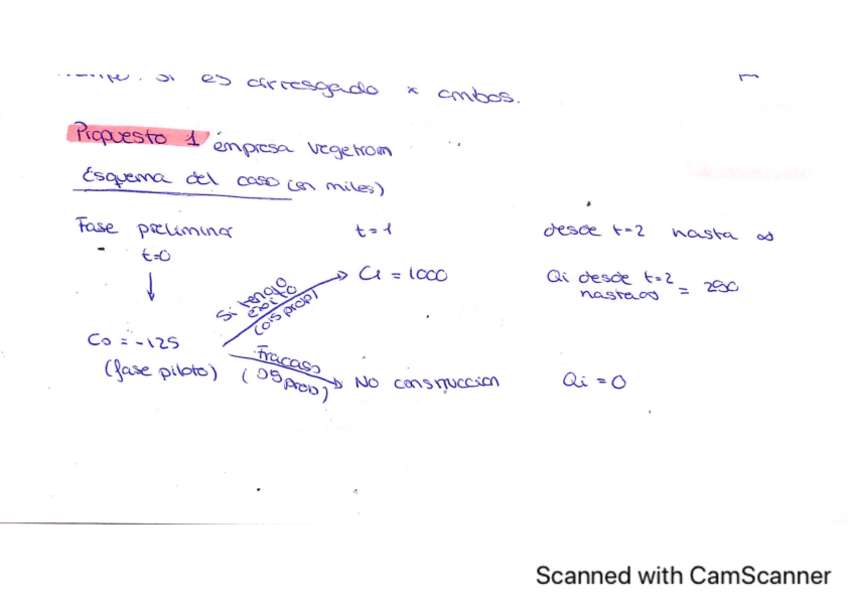 si es arriesgado x ambos.
Propuesto 1 empresa vegetrom
Esquema del caso (en miles)
Fase preliminar t=1 desde t=2 hasta ∞
t=0
Si tengo éxito (0'5 prob) C1 = 1000 Qi desde t=2 hasta ∞ = 250
C0 = -125
(fase piloto) Fracaso (0'5 prob) No construccion Qi = 0
Scanned with CamScanner